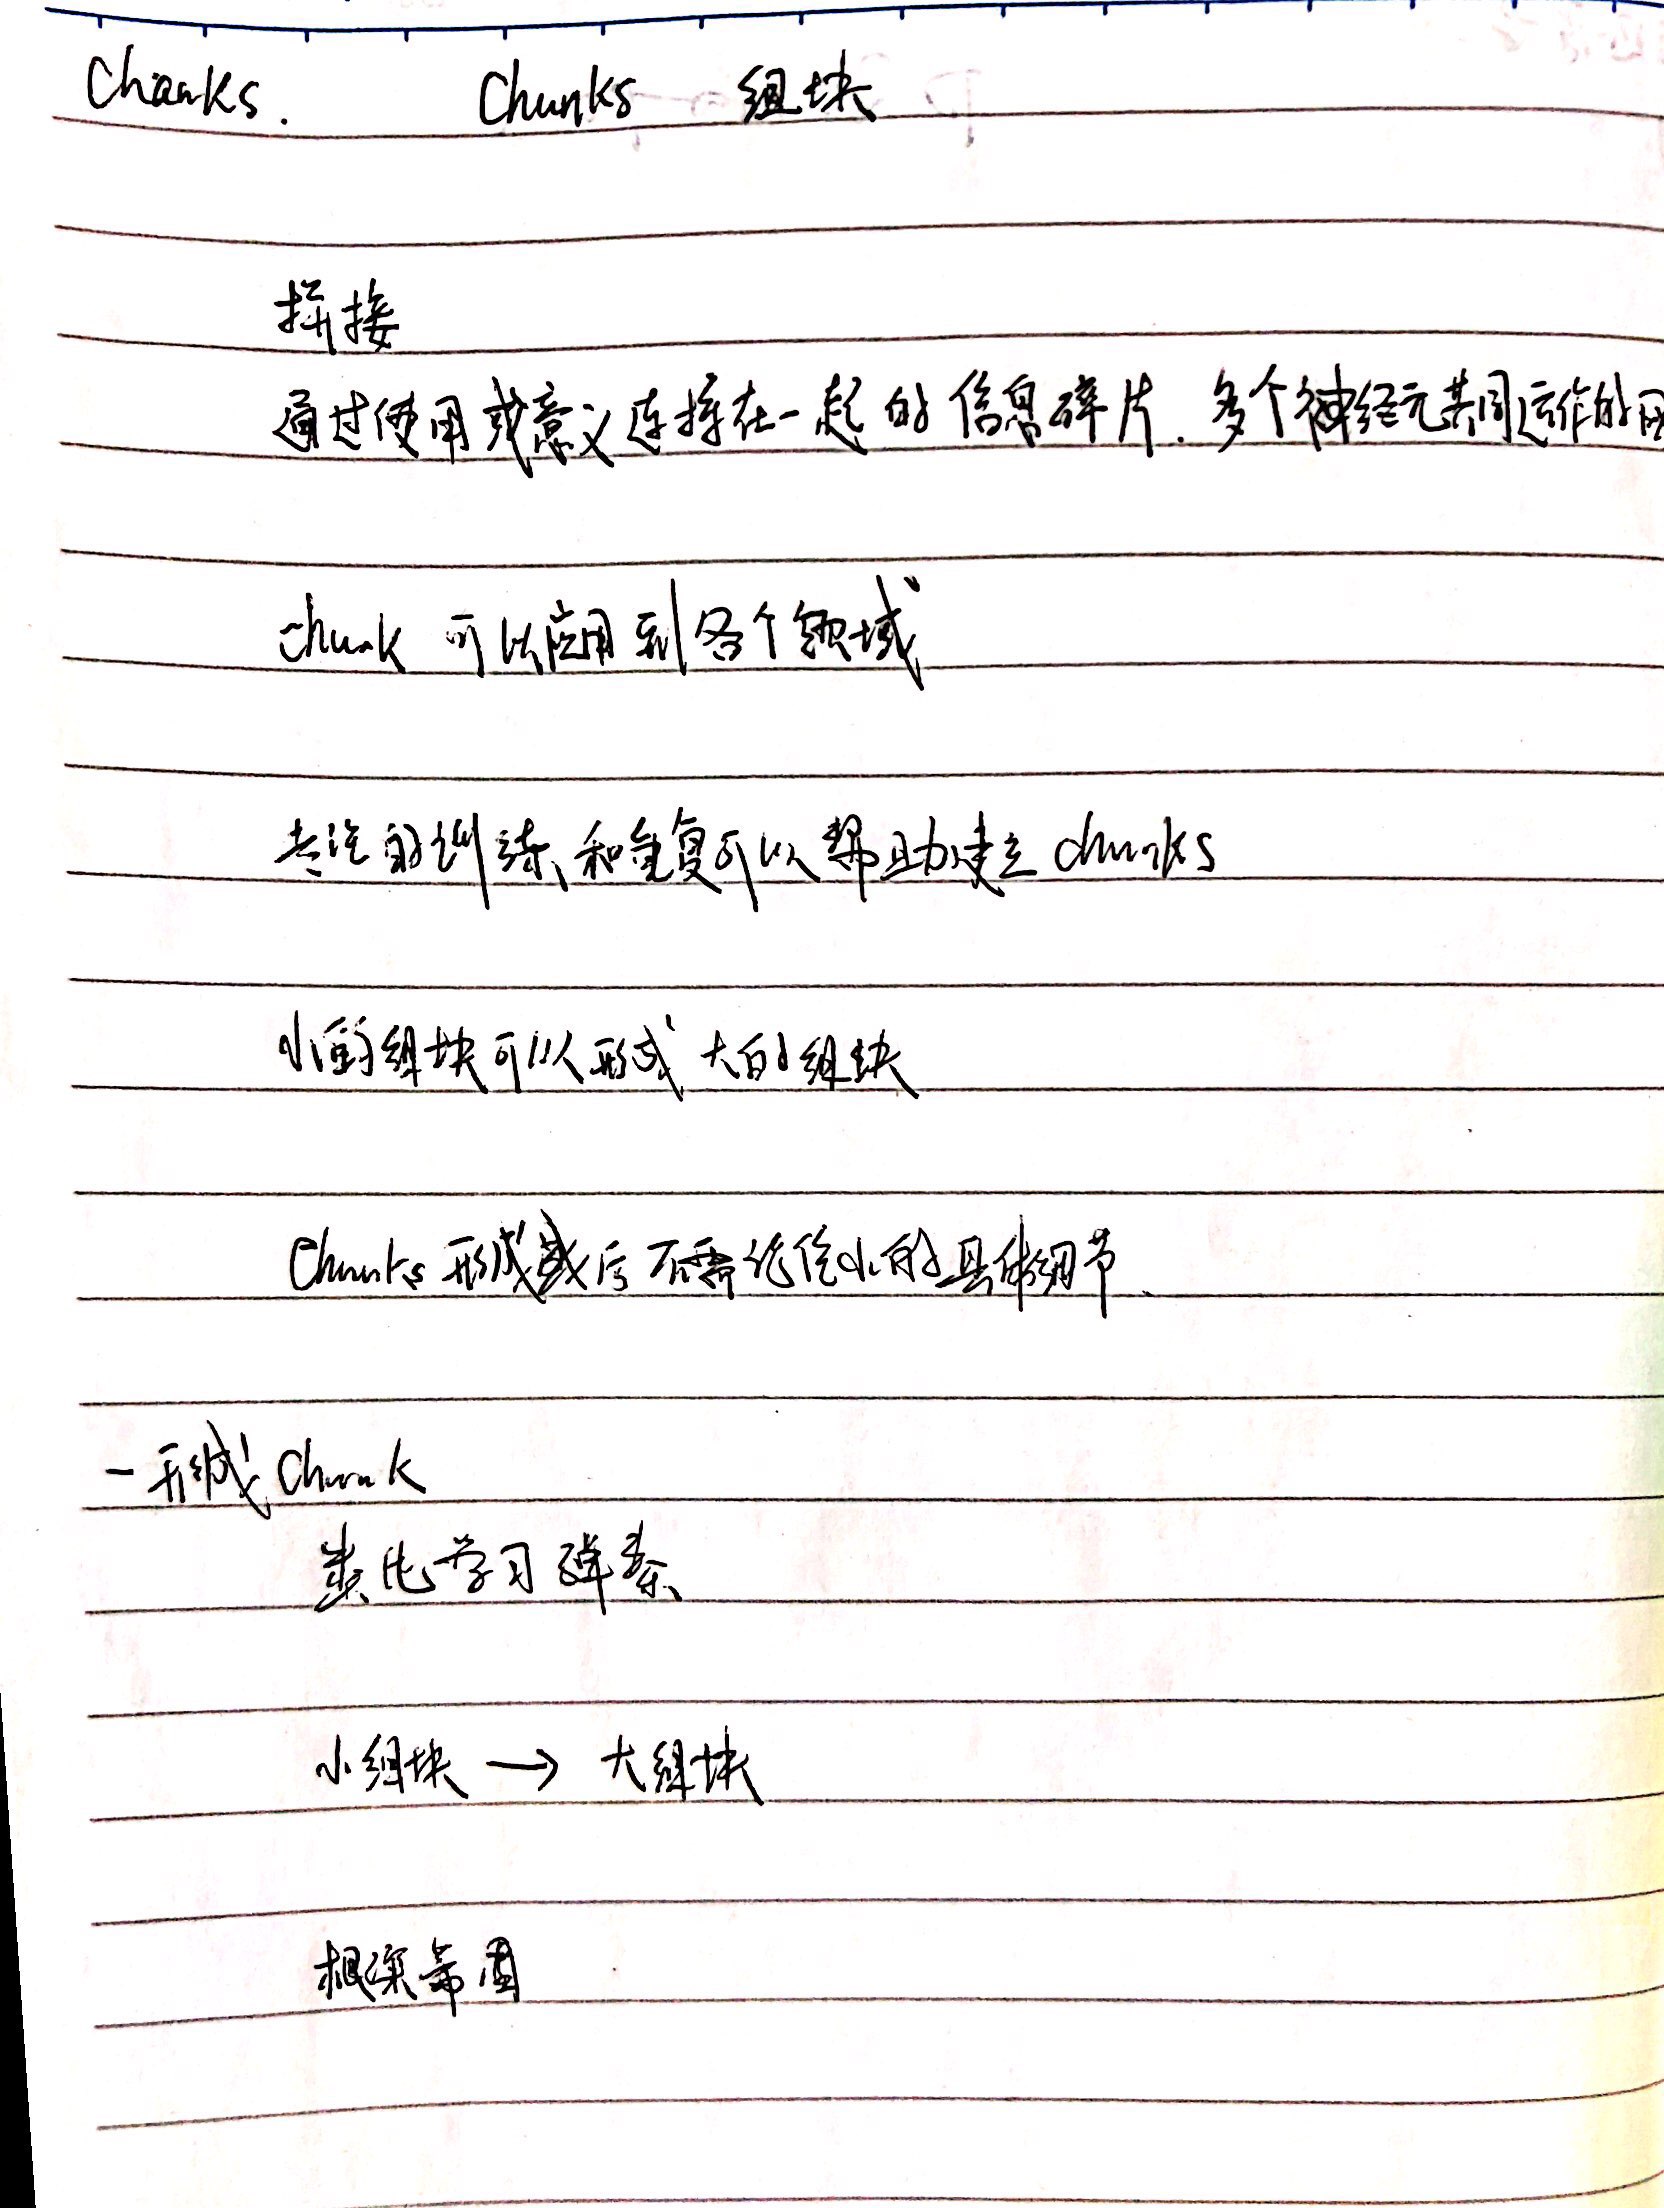 Chanks. Chunks 组块
拼接
通过使用或意义连接在一起的信息碎片.多个神经元共同运作的
chunk 可以应用到各个领域
专注的训练和重复可以帮助建立 chunks
小的组块可以形成大的组块
Chunks 形成后不需记住小的具体细节.
一形成 Chunk
类比学习弹奏
小组块 → 大组块
根深蒂固